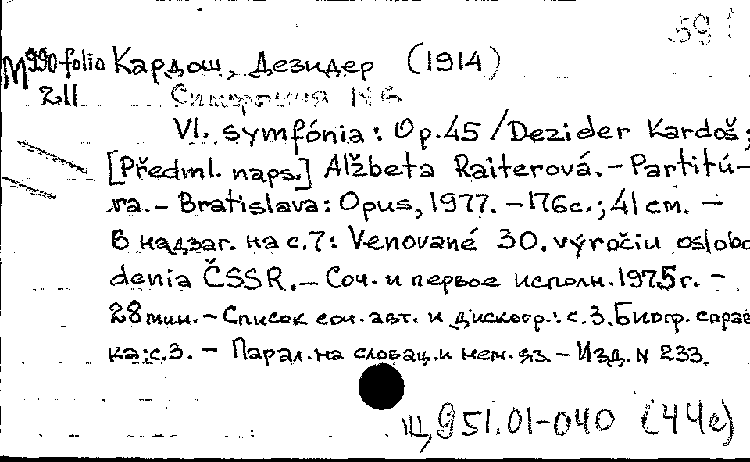 591
M 990-folio Кардош, Дезидер (1914)
211 Симфония N 6
VI. symfónia: Op. 45 / Dezider Kardoš;
[Předml. naps.] Alžbeta Raiterová. - Partitú-
ra. - Bratislava: Opus, 1977. - 176 с.; 41 cm. -
В надзаг. на с. 7: Venované 30. výročiu oslobo
denia ČSSR. - Соч. и первое исполн. 1975 г. -
28 мин. - Список соч. авт. и дискогр.: с. 3. Биогр. справ
ка: с. 3. - Парал. на словац. и нем. яз. - Изд. N 233.
Щ951.01-040 (44е)